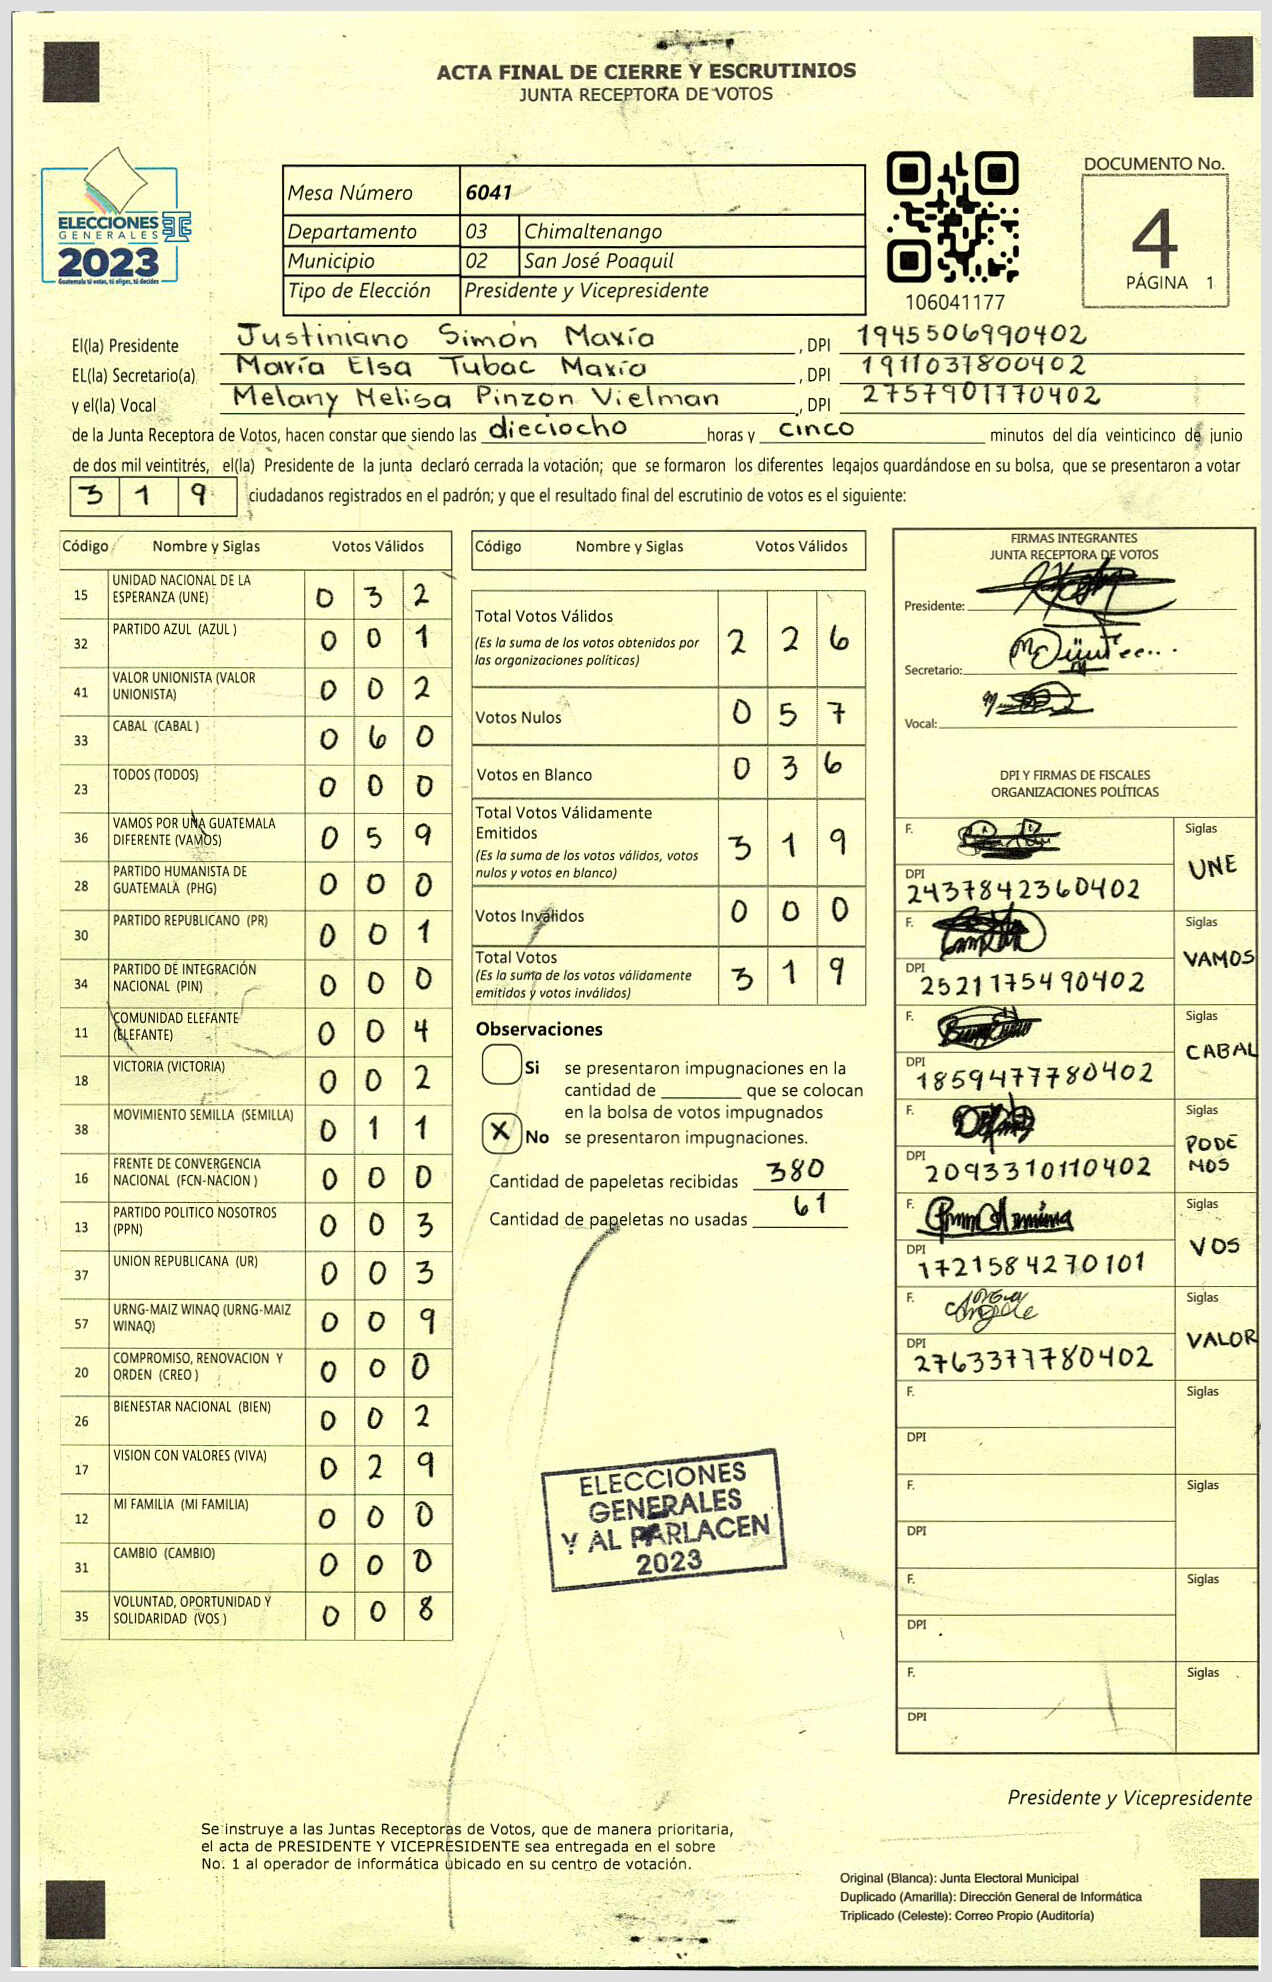 ACTA FINAL DE CIERRE Y ESCRUTINIOS
JUNTA RECEPTORA DE VOTOS
ELECCIONES
GENERALES
2023
Guatemala tú votas, tú eliges, tú decides
Mesa Número 6041
Departamento 03 Chimaltenango
Municipio 02 San José Poaquil
Tipo de Elección Presidente y Vicepresidente
106041177
DOCUMENTO No.
4
PÁGINA 1
El(la) Presidente Justiniano Simón Maxía, DPI 1945506990402
EL(la) Secretario(a) María Elsa Tubac Maxía, DPI 1911037800402
y el(la) Vocal Melany Melisa Pinzon Vielman, DPI 2757901770402
de la Junta Receptora de Votos, hacen constar que siendo las dieciocho horas y cinco minutos del día veinticinco de junio
de dos mil veintitrés, el(la) Presidente de la junta declaró cerrada la votación; que se formaron los diferentes legajos guardándose en su bolsa, que se presentaron a votar
3 1 9 ciudadanos registrados en el padrón; y que el resultado final del escrutinio de votos es el siguiente:
Código Nombre y Siglas Votos Válidos
15 UNIDAD NACIONAL DE LA ESPERANZA (UNE) 0 3 2
32 PARTIDO AZUL (AZUL ) 0 0 1
41 VALOR UNIONISTA (VALOR UNIONISTA) 0 0 2
33 CABAL (CABAL ) 0 6 0
23 TODOS (TODOS) 0 0 0
36 VAMOS POR UNA GUATEMALA DIFERENTE (VAMOS) 0 5 9
28 PARTIDO HUMANISTA DE GUATEMALA (PHG) 0 0 0
30 PARTIDO REPUBLICANO (PR) 0 0 1
34 PARTIDO DE INTEGRACIÓN NACIONAL (PIN) 0 0 0
11 COMUNIDAD ELEFANTE (ELEFANTE) 0 0 4
18 VICTORIA (VICTORIA) 0 0 2
38 MOVIMIENTO SEMILLA (SEMILLA) 0 1 1
16 FRENTE DE CONVERGENCIA NACIONAL (FCN-NACION ) 0 0 0
13 PARTIDO POLITICO NOSOTROS (PPN) 0 0 3
37 UNION REPUBLICANA (UR) 0 0 3
57 URNG-MAIZ WINAQ (URNG-MAIZ WINAQ) 0 0 9
20 COMPROMISO, RENOVACION Y ORDEN (CREO ) 0 0 0
26 BIENESTAR NACIONAL (BIEN) 0 0 2
17 VISION CON VALORES (VIVA) 0 2 9
12 MI FAMILIA (MI FAMILIA) 0 0 0
31 CAMBIO (CAMBIO) 0 0 0
35 VOLUNTAD, OPORTUNIDAD Y SOLIDARIDAD (VOS ) 0 0 8
Código Nombre y Siglas Votos Válidos
Total Votos Válidos 2 2 6
(Es la suma de los votos obtenidos por
las organizaciones políticas)
Votos Nulos 0 5 7
Votos en Blanco 0 3 6
Total Votos Válidamente
Emitidos 3 1 9
(Es la suma de los votos válidos, votos
nulos y votos en blanco)
Votos Inválidos 0 0 0
Total Votos 3 1 9
(Es la suma de los votos válidamente
emitidos y votos inválidos)
Observaciones
Si se presentaron impugnaciones en la
cantidad de ________ que se colocan
en la bolsa de votos impugnados
X No se presentaron impugnaciones.
Cantidad de papeletas recibidas 380
Cantidad de papeletas no usadas 61
ELECCIONES
GENERALES
Y AL PARLACEN
2023
FIRMAS INTEGRANTES
JUNTA RECEPTORA DE VOTOS
Presidente:
Secretario:
Vocal:
DPI Y FIRMAS DE FISCALES
ORGANIZACIONES POLÍTICAS
F. Siglas UNE
DPI 2437842360402
F. Siglas VAMOS
DPI 2521175490402
F. Siglas CABAL
DPI 1859477780402
F. Siglas PODEMOS
DPI 2093310110402
F. Siglas VOS
DPI 1721584270101
F. Siglas VALOR
DPI 2763377780402
F. Siglas
DPI
F. Siglas
DPI
F. Siglas
DPI
F. Siglas
DPI
Presidente y Vicepresidente
Se instruye a las Juntas Receptoras de Votos, que de manera prioritaria,
el acta de PRESIDENTE Y VICEPRESIDENTE sea entregada en el sobre
No. 1 al operador de informática ubicado en su centro de votación.
Original (Blanca): Junta Electoral Municipal
Duplicado (Amarilla): Dirección General de Informática
Triplicado (Celeste): Correo Propio (Auditoría)